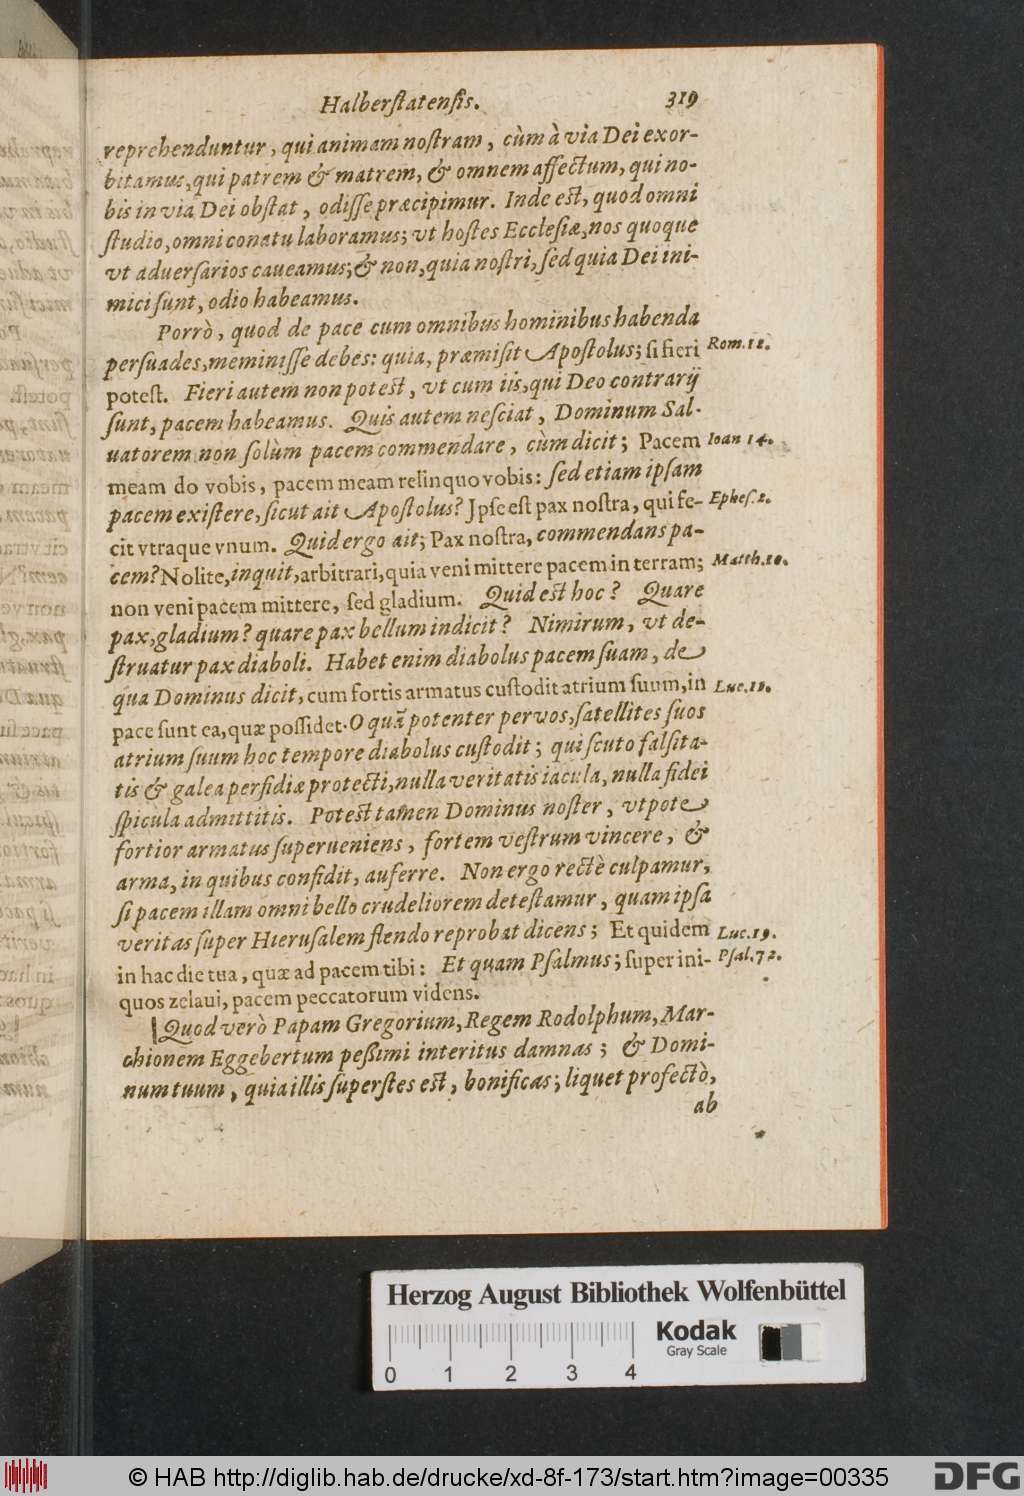 Halberſtatenſis. 319
reprehenduntur, qui animam noſtram, cùm à via Dei exor-
bitamus, qui patrem & matrem, & omnem affectum, qui no-
bis in via Dei obſtat, odiſſe præcipimur. Inde eſt, quod omni
ſtudio, omni conatu laboramus; vt hoſtes Eccleſiæ, nos quoque
vt aduerſarios caueamus; & non, quia noſtri, ſed quia Dei ini-
mici ſunt, odio habeamus.
Porrò, quod de pace cum omnibus hominibus habenda
perſuades, meminiſſe debes: quia, præmiſit Apoſtolus; ſi fieri Rom. 12.
poteſt. Fieri autem non poteſt, vt cum iis, qui Deo contrarij
ſunt, pacem habeamus. Quis autem neſciat, Dominum Sal-
uatorem non ſolùm pacem commendare, cùm dicit; Pacem Ioan 14.
meam do vobis, pacem meam relinquo vobis: ſed etiam ipſam
pacem exiſtere, ſicut ait Apoſtolus? Ipſe eſt pax noſtra, qui fe- Epheſ. 2.
cit vtraque vnum. Quid ergo ait; Pax noſtra, commendans pa-
cem? Nolite, inquit, arbitrari, quia veni mittere pacem in terram; Matth. 10.
non veni pacem mittere, ſed gladium. Quid eſt hoc? Quare
pax, gladium? quare pax bellum indicit? Nimirum, vt de-
ſtruatur pax diaboli. Habet enim diabolus pacem ſuam, de
qua Dominus dicit, cum fortis armatus cuſtodit atrium ſuum, in Luc. 11.
pace ſunt ea, quæ poſſidet. O quã potenter per vos, ſatellites ſuos
atrium ſuum hoc tempore diabolus cuſtodit; qui ſcuto falſita-
tis & galea perfidiæ protecti, nulla veritatis iacula, nulla fidei
ſpicula admittitis. Poteſt tamen Dominus noſter, vtpote
fortior armatus ſuperueniens, fortem veſtrum vincere, &
arma, in quibus confidit, auferre. Non ergo rectè culpamur,
ſi pacem illam omni bello crudeliorem deteſtamur, quam ipſa
veritas ſuper Hieruſalem flendo reprobat dicens; Et quidem Luc. 19.
in hac die tua, quæ ad pacem tibi: Et quam Pſalmus; ſuper ini- Pſal. 72.
quos zelaui, pacem peccatorum videns.
Quod verò Papam Gregorium, Regem Rodolphum, Mar-
chionem Eggebertum peſſimi interitus damnas; & Domi-
num tuum, quia illis ſuperſtes eſt, bonificas; liquet profectò,
ab
Herzog August Bibliothek Wolfenbüttel
Kodak
Gray Scale
0 1 2 3 4
© HAB http://diglib.hab.de/drucke/xd-8f-173/start.htm?image=00335
DFG